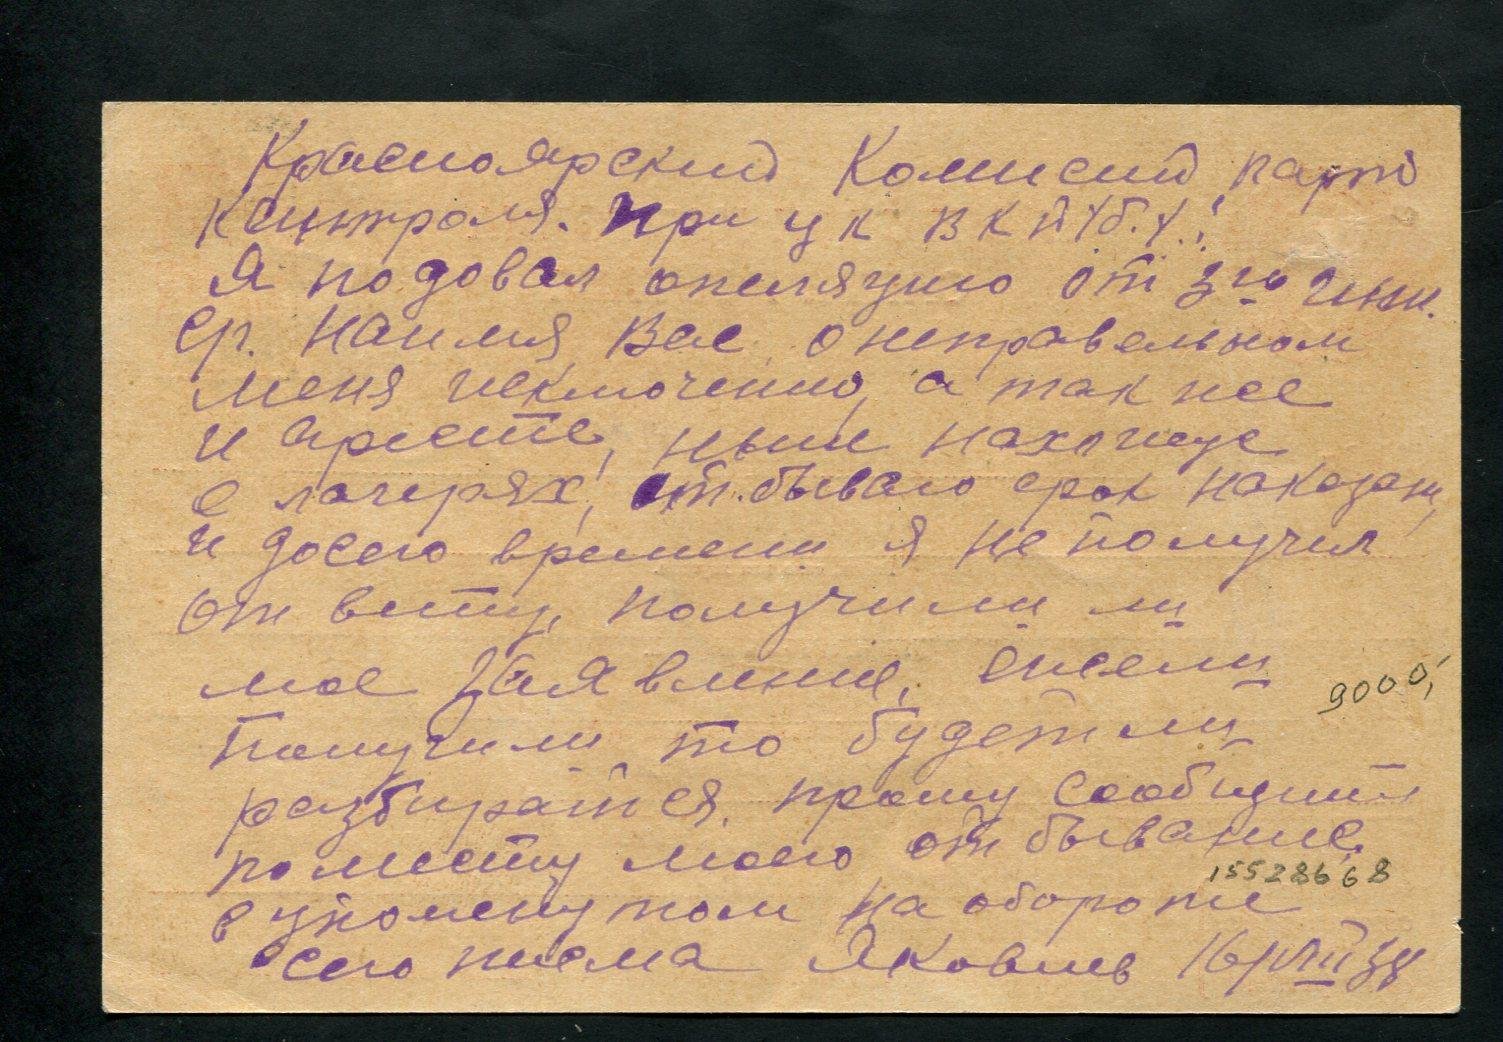 Красноярский Комисий парт
Контроля. при цк ВКП(б.).!
Я подовал опеляцию от 3го
ср. На имя Вас о неправельном
меня исключению, а так же
и аресте, ныне нахожус
в лагерях, отбываю срок наказан,
и досего времени я не получил
от вету, получили ли
мое Заявление, ежели
получили то будет ли
9000,
разбиратся, прошу сообщит
по месту моего отбывание,
15528668
в упоменутом на обороте
сего писма Яковлев